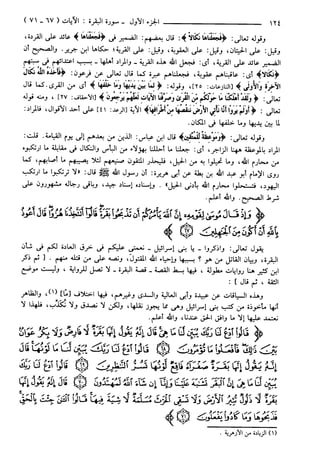 ١٢٤ الجزء الأول - سورة البقرة : الآيات (٦٧ - ٧١)
وقوله تعالى: ﴿فَجَعَلْنَاهَا نَكَالًا﴾: قال بعضهم: الضمير في ﴿فَجَعَلْنَاهَا﴾ عائد على القردة،
وقيل: على الحيتان، وقيل: على العقوبة، وقيل: على القرية، حكاها ابن جرير. والصحيح أن
الضمير عائد على القرية، أي: فجعل الله هذه القرية - والمراد أهلها - بسبب اعتدائهم في سبتهم
﴿نَكَالًا﴾ أي: عاقبناهم عقوبة، فجعلناهم عبرة كما قال تعالى عن فرعون: ﴿فَأَخَذَهُ اللَّهُ نَكَالَ
الْآخِرَةِ وَالْأُولَى﴾ [النازعات: ٢٥]، وقوله: ﴿لِمَا بَيْنَ يَدَيْهَا وَمَا خَلْفَهَا﴾ أي من القرى، كما قال
تعالى: ﴿وَلَقَدْ أَهْلَكْنَا مَا حَوْلَكُمْ مِنَ الْقُرَى وَصَرَّفْنَا الْآيَاتِ لَعَلَّهُمْ يَرْجِعُونَ﴾ [الأحقاف: ٢٧]، ومنه قوله
تعالى: ﴿أَوَلَمْ يَرَوْا أَنَّا نَأْتِي الْأَرْضَ نَنْقُصُهَا مِنْ أَطْرَافِهَا﴾ الآية [الرعد: ٤١] على أحد الأقوال، فالمراد:
لما بين يديها وما خلفها في المكان.
وقوله تعالى: ﴿وَمَوْعِظَةً لِلْمُتَّقِينَ﴾: قال ابن عباس: الذين من بعدهم إلى يوم القيامة. قلت:
المراد بالموعظة ههنا الزاجر، أي: جعلنا ما أحللنا بهؤلاء من البأس والنكال في مقابلة ما ارتكبوه
من محارم الله، وما تحيلوا به من الحيل، فليحذر المتقون صنيعهم لئلا يصيبهم ما أصابهم، كما
روى الإمام أبو عبد الله بن بطة عن أبي هريرة: أن رسول الله ﷺ قال: «لا ترتكبوا ما ارتكب
اليهود، فتستحلوا محارم الله بأدنى الحيل». وإسناده إسناد جيد، وباقي رجاله مشهورون على
شرط الصحيح. والله أعلم.
وَإِذْ قَالَ مُوسَى لِقَوْمِهِ إِنَّ اللَّهَ يَأْمُرُكُمْ أَنْ تَذْبَحُوا بَقَرَةً قَالُوا أَتَتَّخِذُنَا هُزُوًا قَالَ أَعُوذُ
بِاللَّهِ أَنْ أَكُونَ مِنَ الْجَاهِلِينَ ٦٧
يقول تعالى: واذكروا - يا بني إسرائيل - نعمتي عليكم في خرق العادة لكم في شأن
البقرة، وبيان القاتل من هو؟ بسببها وإحياء الله المقتول، ونصه على من قتله منهم. [ثم ذكر
ابن كثير هنا روايات مطولة، فيها بسط القصة - قصة البقرة - لا تصل للرواية، وليست موضع
الثقة، ثم قال]:
وهذه السياقات عن عبيدة وأبي العالية والسدي وغيرهم، فيها اختلاف [مّا] (١)، والظاهر
أنها مأخوذة من كتب بني إسرائيل وهي مما يجوز نقلها، ولكن لا نصدق ولا نكذب، فلهذا لا
نعتمد عليها إلا ما وافق الحق عندنا، والله أعلم.
قَالُوا ادْعُ لَنَا رَبَّكَ يُبَيِّنْ لَنَا مَا هِيَ قَالَ إِنَّهُ يَقُولُ إِنَّهَا بَقَرَةٌ لَا فَارِضٌ وَلَا بِكْرٌ عَوَانٌ
بَيْنَ ذَلِكَ فَافْعَلُوا مَا تُؤْمَرُونَ ٦٨ قَالُوا ادْعُ لَنَا رَبَّكَ يُبَيِّنْ لَنَا مَا لَوْنُهَا قَالَ
إِنَّهُ يَقُولُ إِنَّهَا بَقَرَةٌ صَفْرَاءُ فَاقِعٌ لَوْنُهَا تَسُرُّ النَّاظِرِينَ ٦٩ قَالُوا ادْعُ لَنَا رَبَّكَ
يُبَيِّنْ لَنَا مَا هِيَ إِنَّ الْبَقَرَ تَشَابَهَ عَلَيْنَا وَإِنَّا إِنْ شَاءَ اللَّهُ لَمُهْتَدُونَ ٧٠ قَالَ إِنَّهُ يَقُولُ إِنَّهَا
بَقَرَةٌ لَا ذَلُولٌ تُثِيرُ الْأَرْضَ وَلَا تَسْقِي الْحَرْثَ مُسَلَّمَةٌ لَا شِيَةَ فِيهَا قَالُوا الْآنَ جِئْتَ بِالْحَقِّ
فَذَبَحُوهَا وَمَا كَادُوا يَفْعَلُونَ ٧١
(١) الزيادة من الأزهرية .